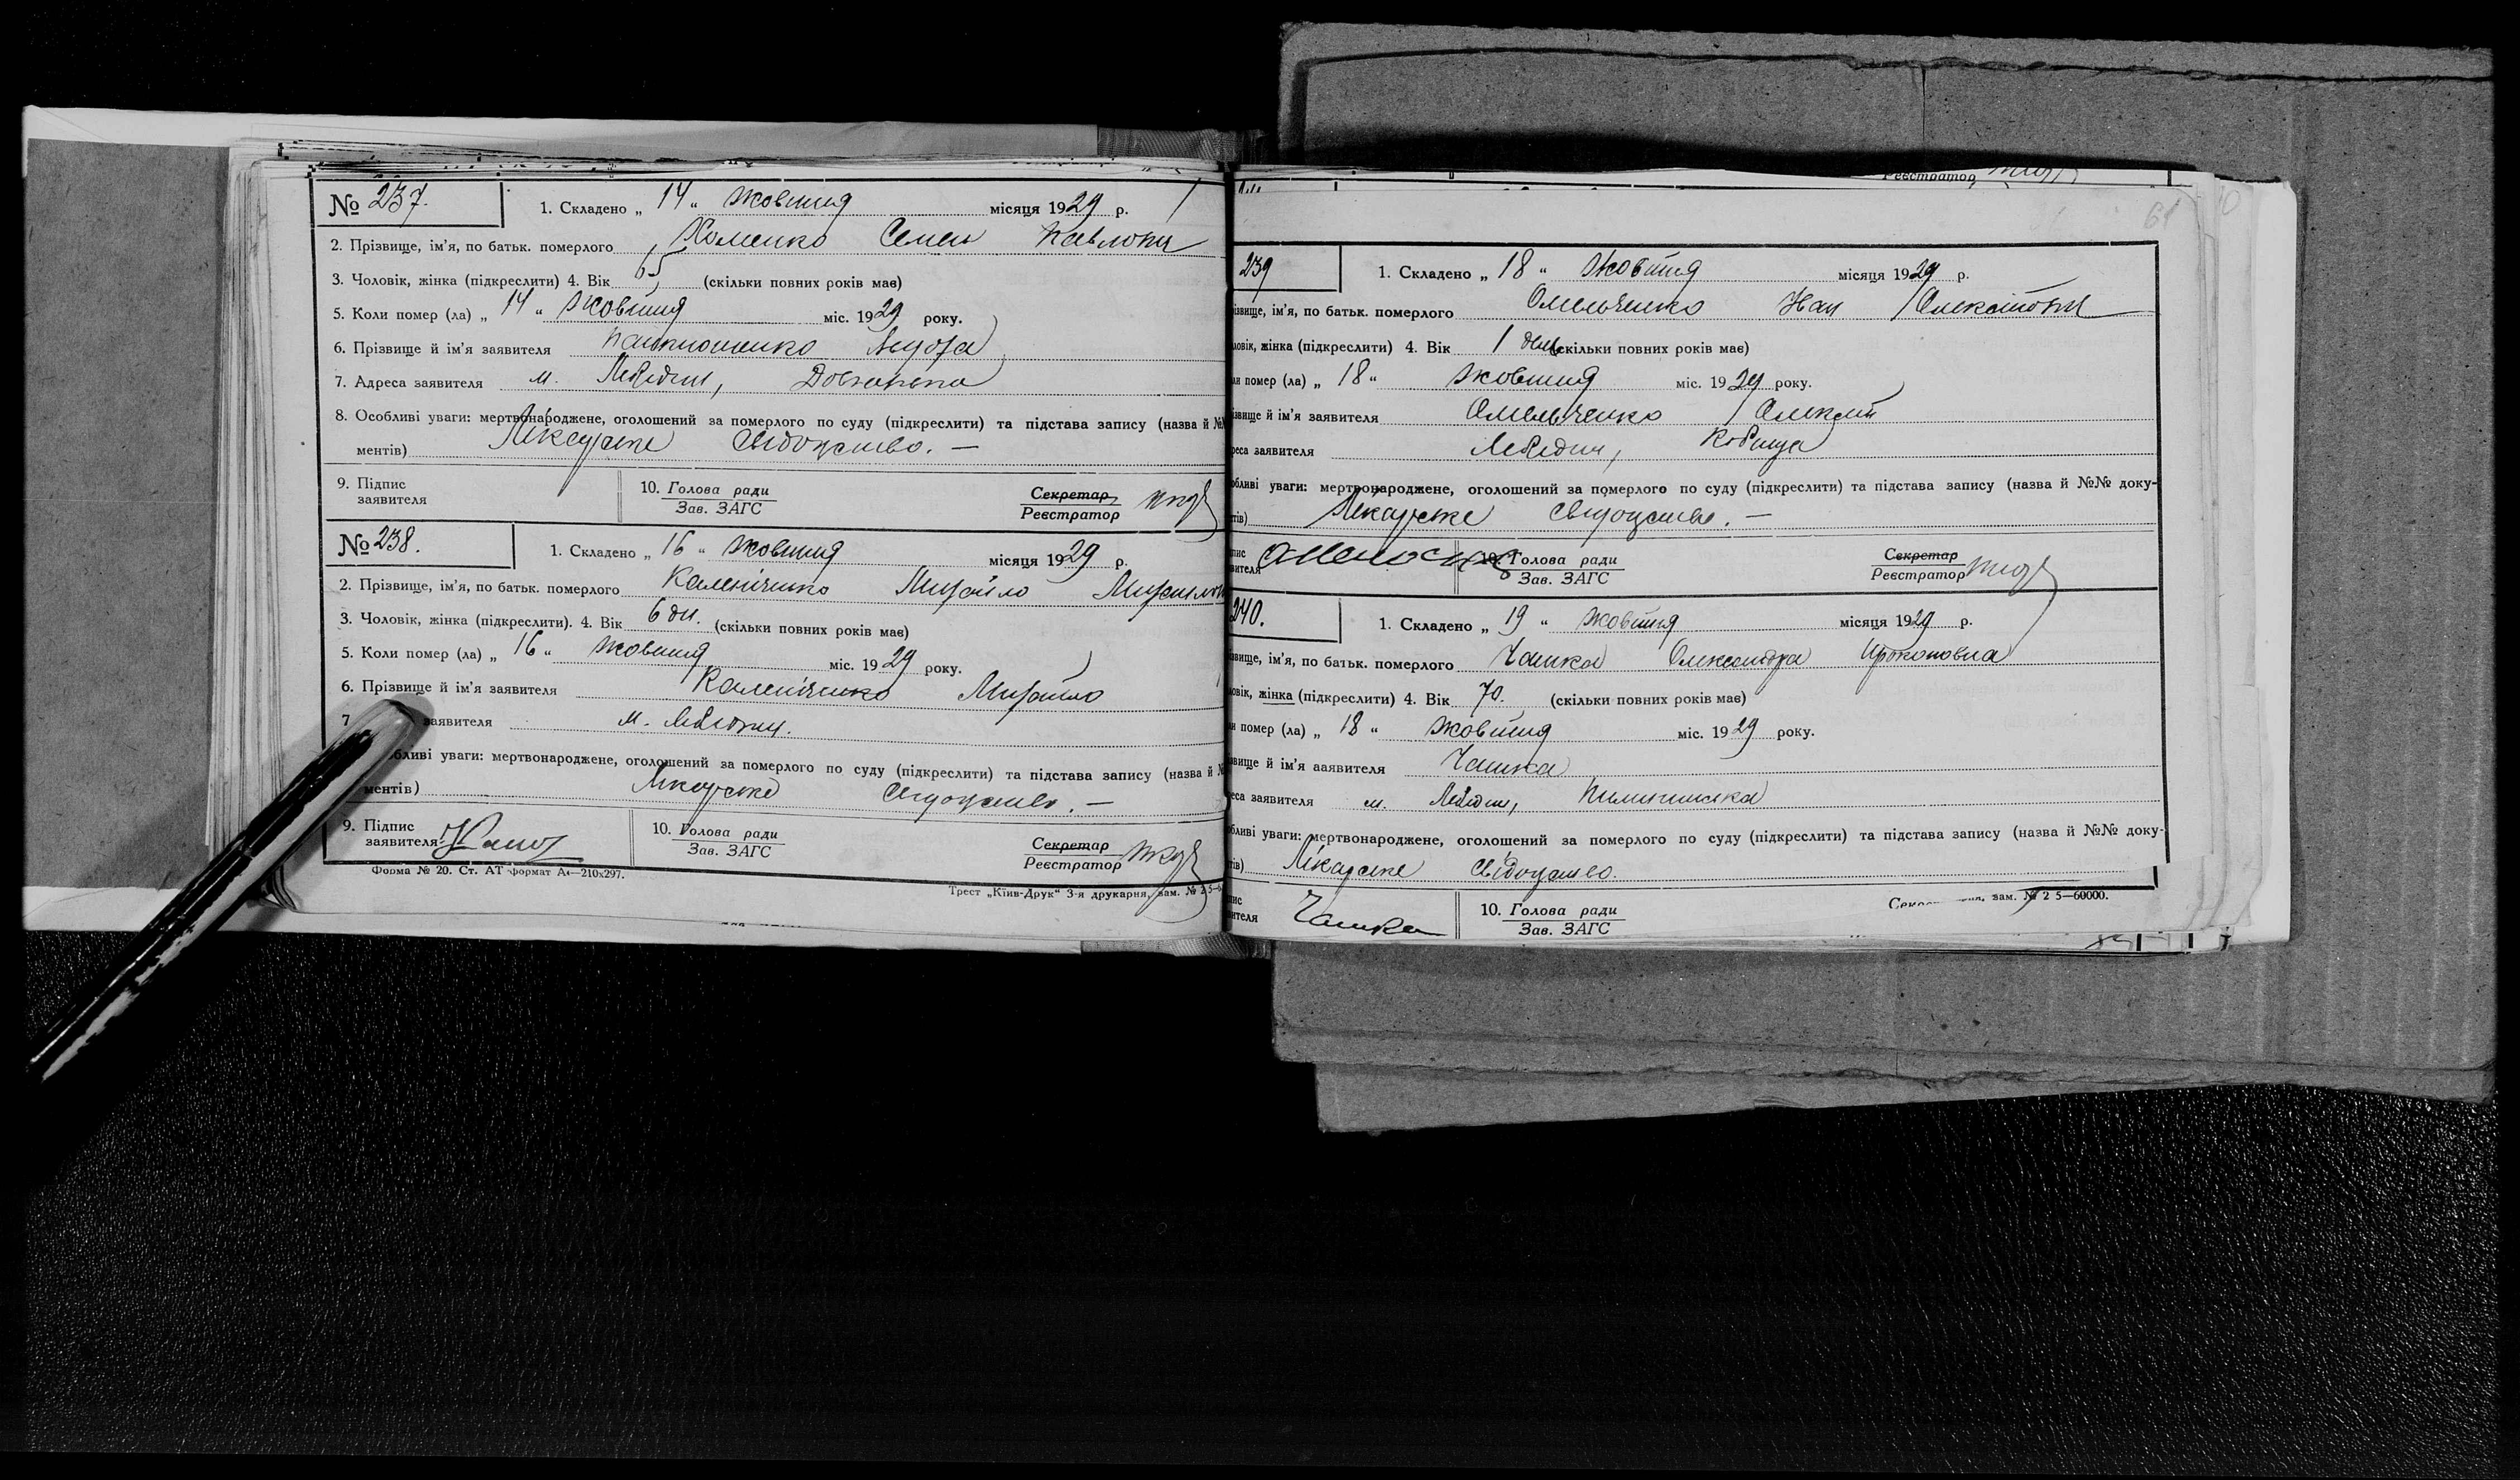 № 237. 1. Складено „ 14 “ Жовтня місяця 1929 р.
2. Прізвище, ім'я, по батьк. померлого Хоменко Семен Павлович
3. Чоловік, жінка (підкреслити) 4. Вік 65 (скільки повних років має)
5. Коли помер (ла) „ 14 “ Жовтня міс. 1929 року.
6. Прізвище й ім'я заявителя
7. Адреса заявителя м. Лебедин,
8. Особливі уваги: мертвонароджене, оголошений за померлого по суду (підкреслити) та підстава запису (назва й
ментів) Лікарське свідоцтво. —
9. Підпис заявителя 10. Голова ради Зав. ЗАГС Секретар Реєстратор
№ 238. 1. Складено „ 16 “ Жовтня місяця 1929 р.
2. Прізвище, ім'я, по батьк. померлого Каленіченко Михайло
3. Чоловік, жінка (підкреслити). 4. Вік 6 дн. (скільки повних років має)
5. Коли помер (ла) „ 16 “ Жовтня міс. 1929 року.
6. Прізвище й ім'я заявителя Каленіченко Михайло
7 заявителя м. Лебедин.
бливі уваги: мертвонароджене, оголошений за померлого по суду (підкреслити) та підстава запису (назва й
ментів) Лікарське свідоцтво. —
9. Підпис заявителя 10. Голова ради Зав. ЗАГС Секретар Реєстратор
Форма № 20. Ст. АТ формат А4—210х297.
Трест „Київ-Друк“ 3-я друкарня, зам. №
Реєстратор
61
239 1. Складено „ 18 “ Жовтня місяця 1929 р.
ізвище, ім'я, по батьк. померлого Омельченко Іван Олексійович
ловік, жінка (підкреслити) 4. Вік 1 день (скільки повних років має)
ли помер (ла) „ 18 “ Жовтня міс. 1929 року.
ізвище й ім'я заявителя Омельченко Олексій
реса заявителя Лебедин, Кобища
обливі уваги: мертвонароджене, оголошений за померлого по суду (підкреслити) та підстава запису (назва й №№ доку-
тів) Лікарське свідоцтво. —
пис вителя 10. Голова ради Зав. ЗАГС Секретар Реєстратор
240. 1. Складено „ 19 “ Жовтня місяця 1929 р.
звище, ім'я, по батьк. померлого Чашка Олександра Прокоповна
ловік, жінка (підкреслити) 4. Вік 70. (скільки повних років має)
и помер (ла) „ 18 “ Жовтня міс. 1929 року.
звище й ім'я аявителя Чашка
еса заявителя м. Лебедин,
бливі уваги: мертвонароджене, оголошений за померлого по суду (підкреслити) та підстава запису (назва й №№ доку-
тів) Лікарське свідоцтво.
пис ителя Чашка 10. Голова ради Зав. ЗАГС
зам. № 2 5—60000.